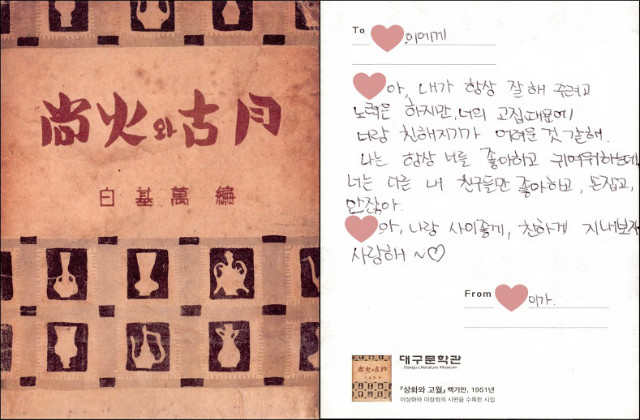 尙火와古月
白基萬 編
To 이에게
아, 내가 항상 잘해 주려고
노력은 하지만, 너의 고집때문에
너랑 친해지기가 어려운 것 같해.
나는 항상 너를 좋아하고 귀여워하는데,
너는 다른 내 친구들만 좋아하고,
안잖아.
아, 나랑 사이좋게, 친하게 지내보자
사랑해 ~♡
From 이가.
尙火와古月
대구문학관
Daegu Literature Museum
『상화와 고월』 백기만, 1951년
이상화와 이장희의 시편을 수록한 시집